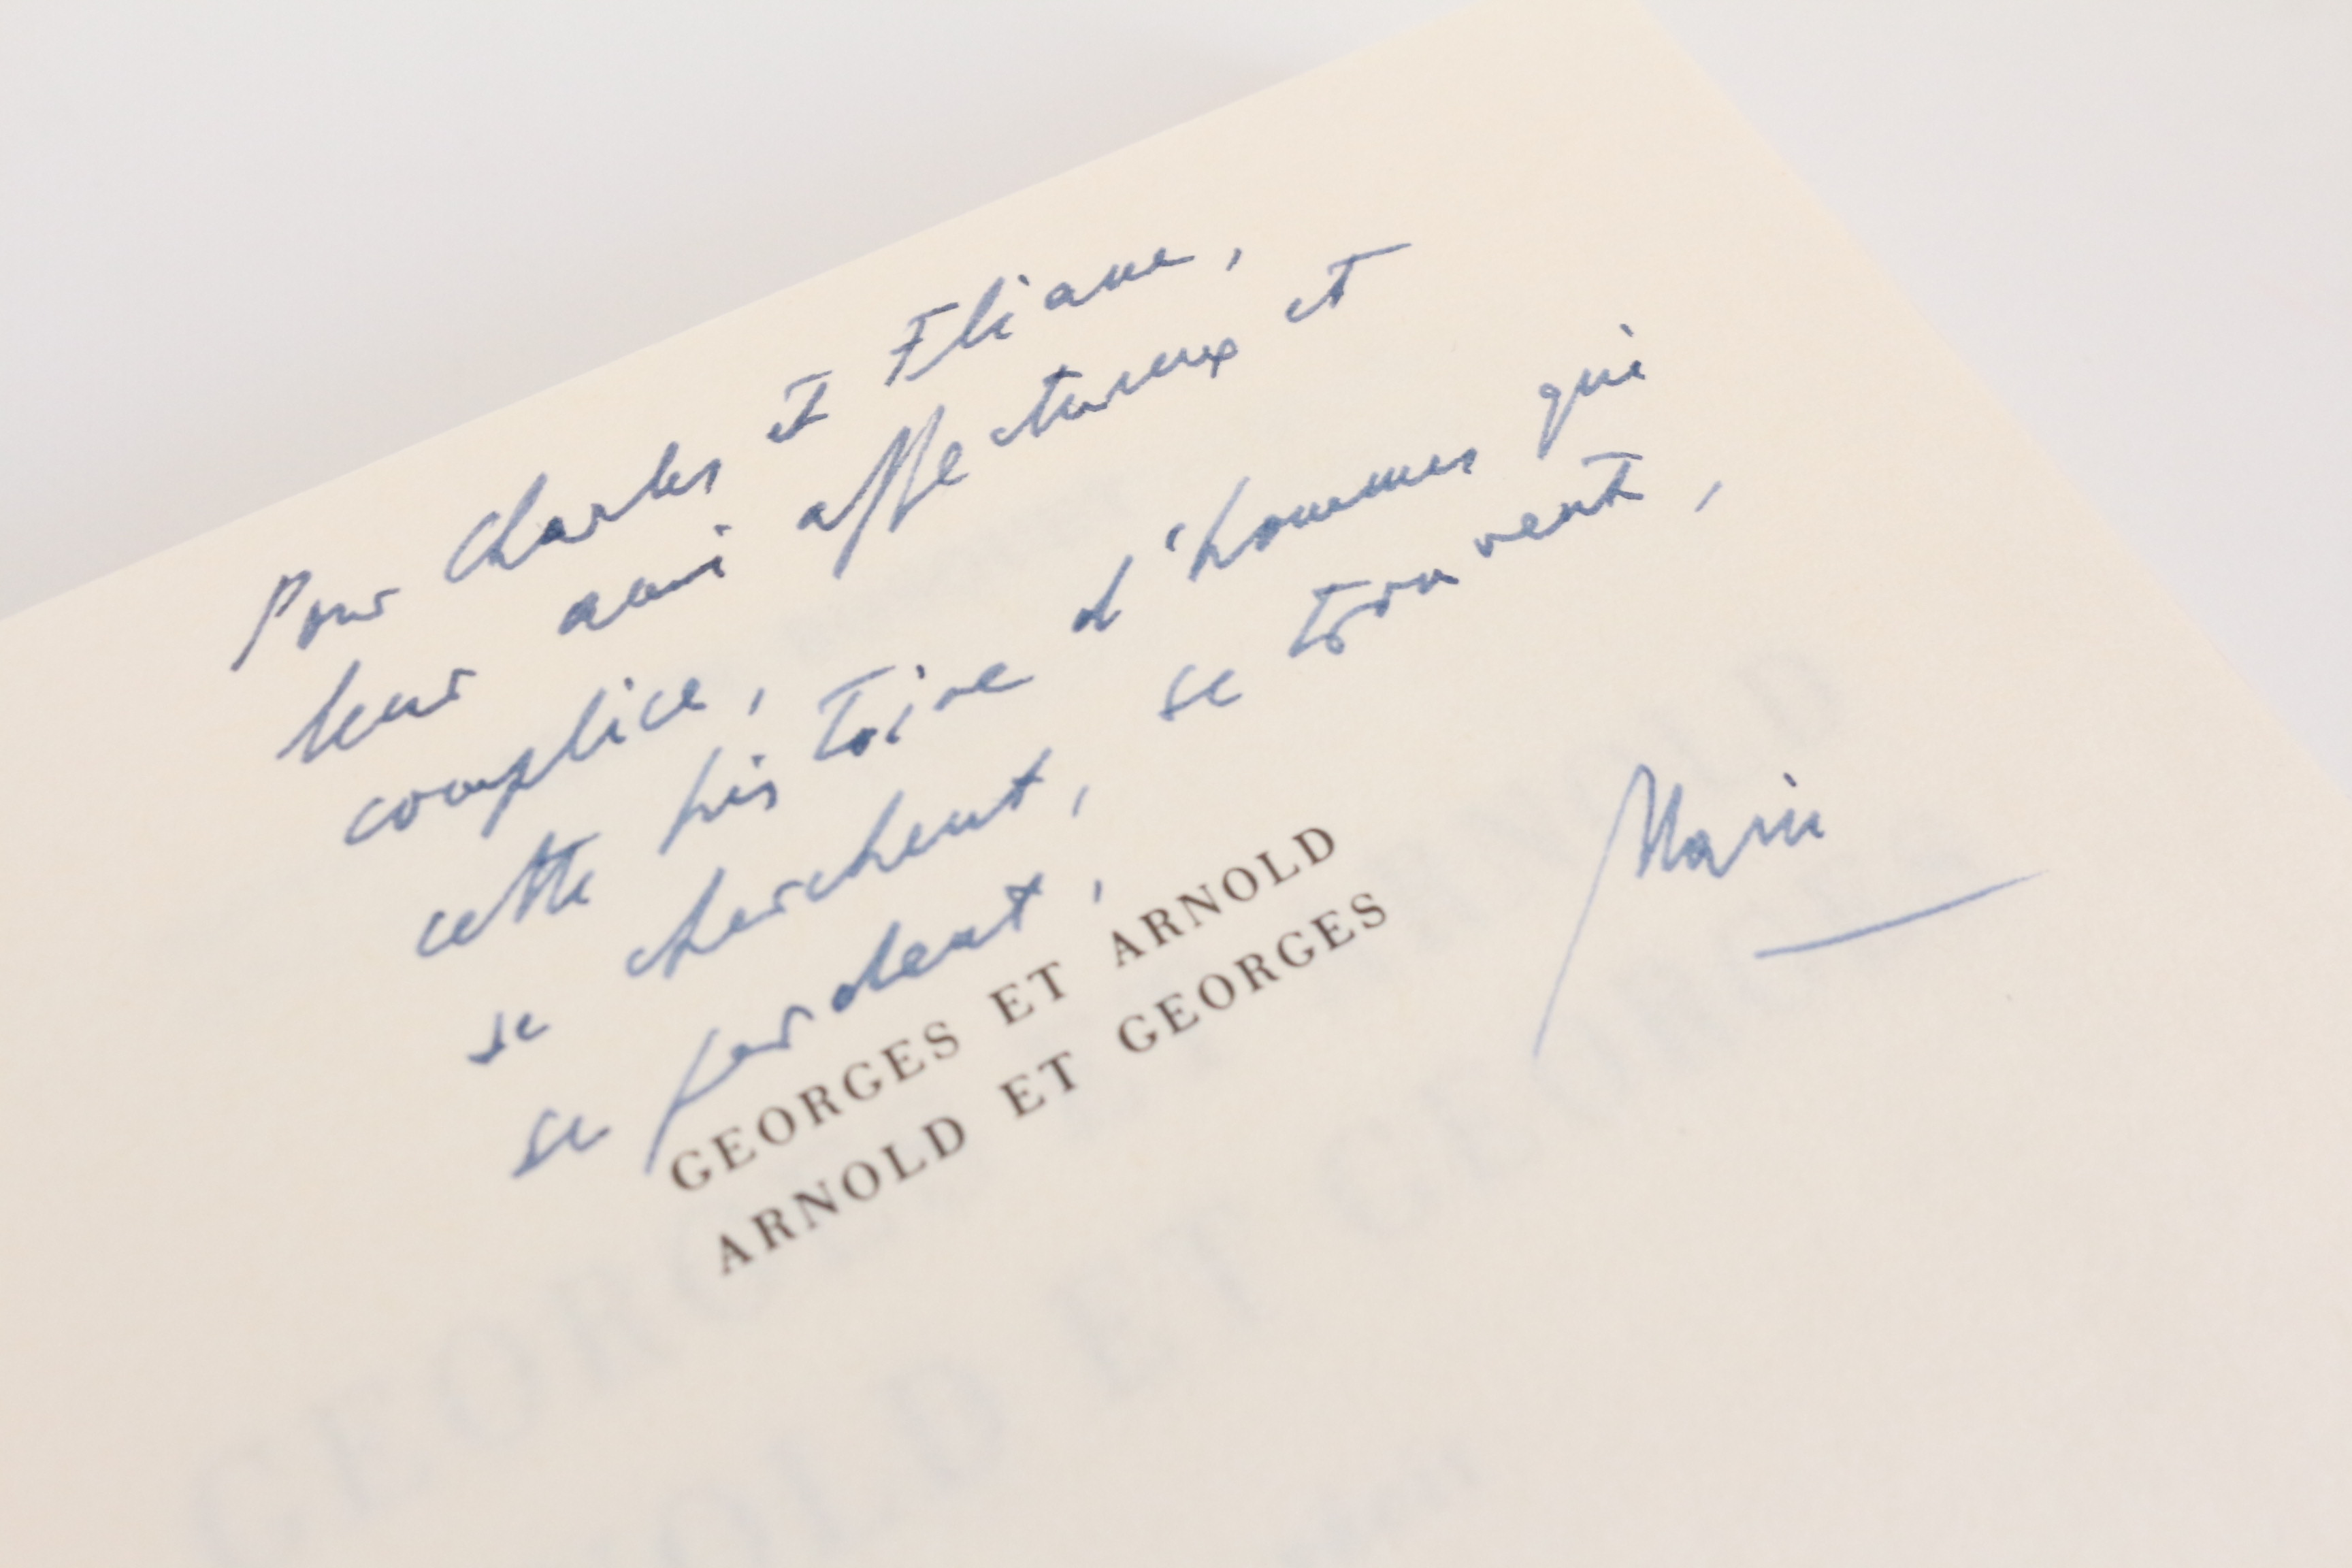 Pour Charles et Eliane,
leur ami affectueux et
complice,
cette histoire d'hommes qui
se cherchent, se trouvent,
se perdent,
Marin
GEORGES ET ARNOLD
ARNOLD ET GEORGES